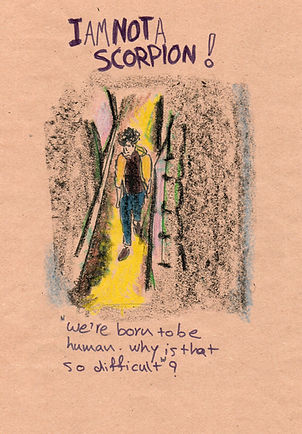 I AM NOT A
SCORPION!
"We're born to be
human. why is that
so difficult"?